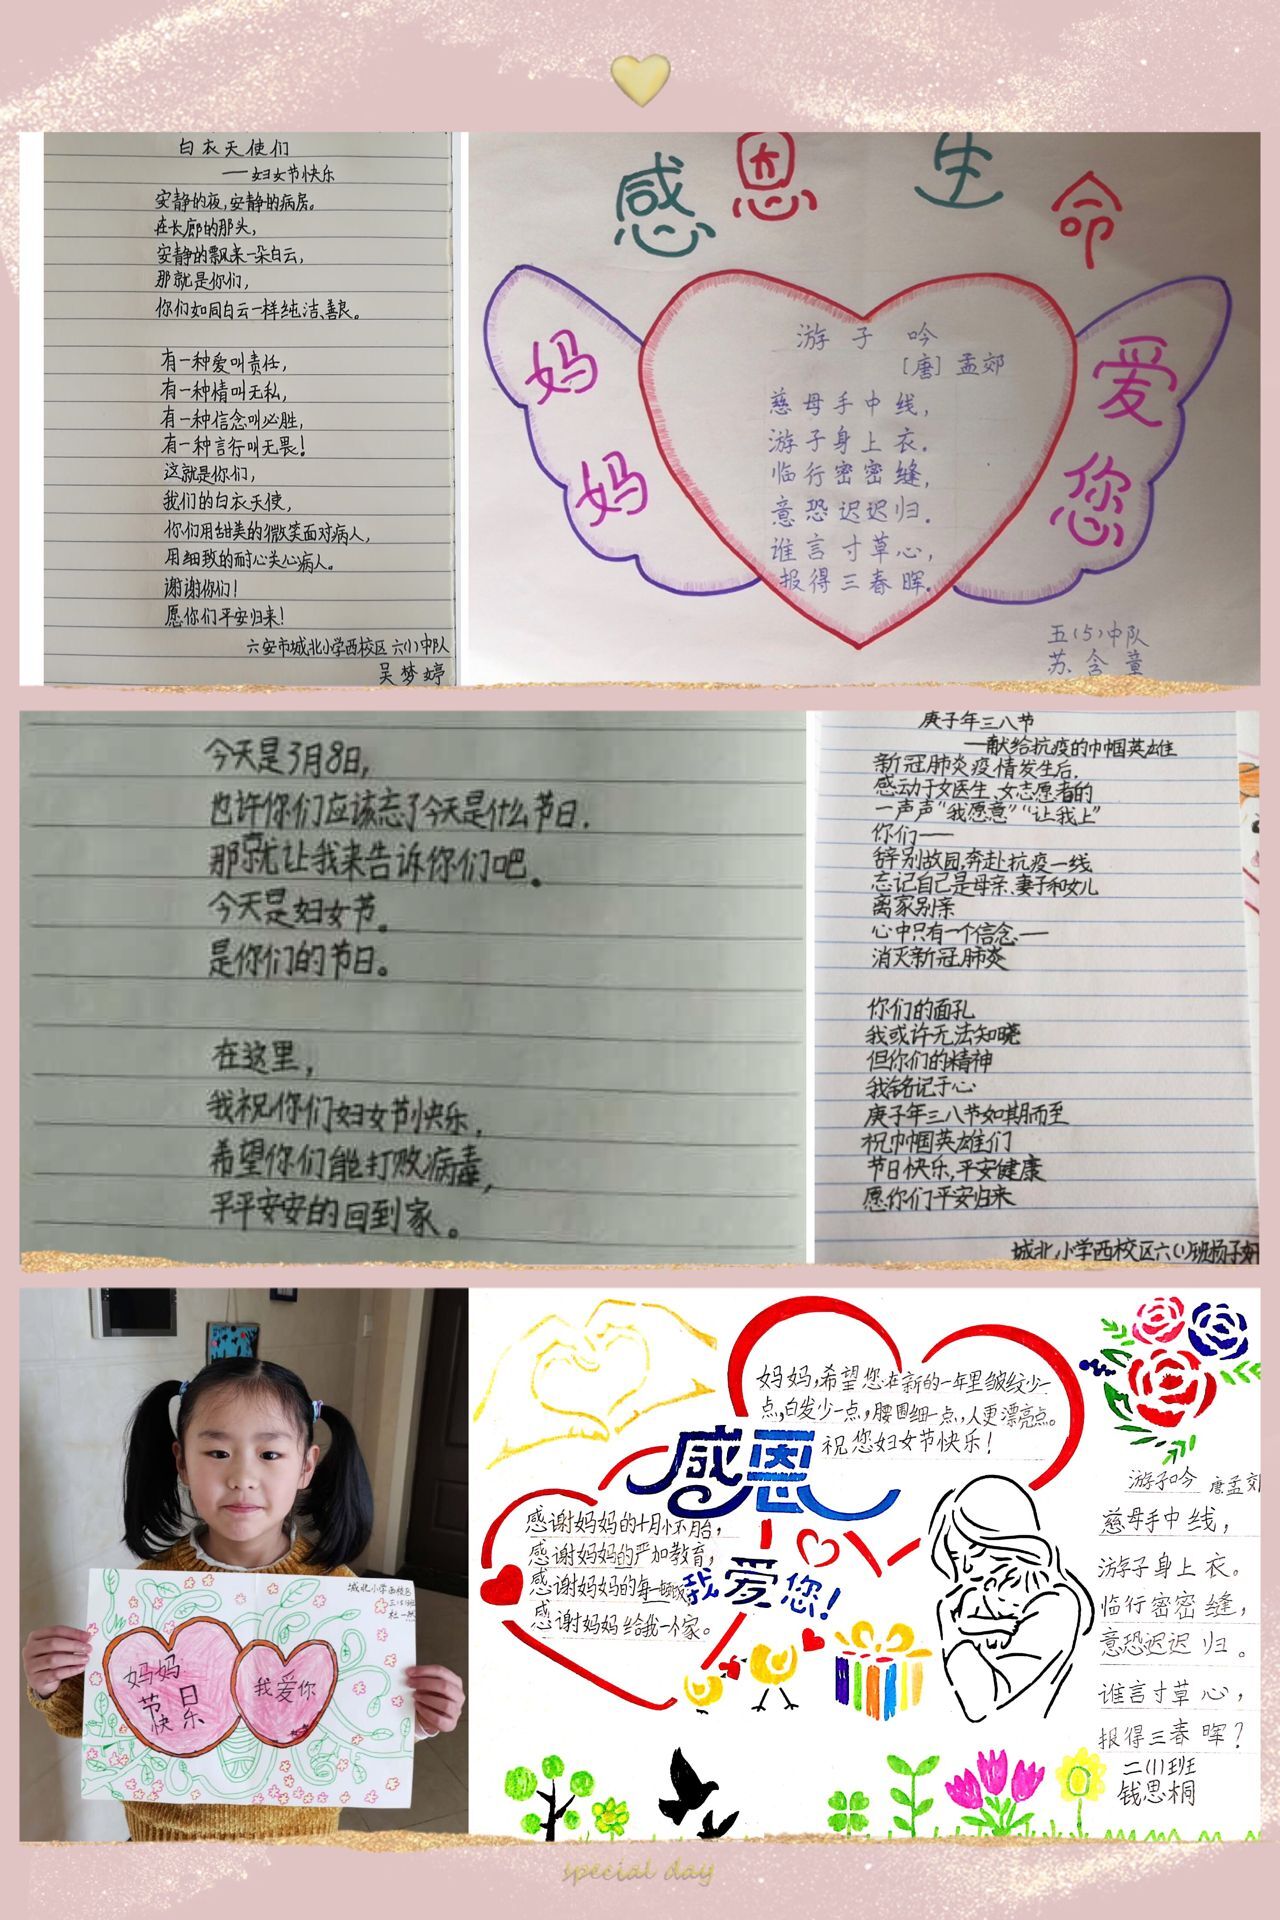 白衣天使们
——妇女节快乐
安静的夜,安静的病房。
在长廊的那头,
安静的飘来一朵白云,
那就是你们,
你们如同白云一样纯洁、善良。
有一种爱叫责任,
有一种情叫无私,
有一种信念叫必胜,
有一种言行叫无畏!
这就是你们,
我们的白衣天使,
你们用甜美的微笑面对病人,
用细致的耐心关心病人。
谢谢你们!
愿你们平安归来!
六安市城北小学西校区 六(1)中队
吴梦婷
感恩生命
妈妈
爱您
游子吟
[唐] 孟郊
慈母手中线,
游子身上衣。
临行密密缝,
意恐迟迟归。
谁言寸草心,
报得三春晖。
五(5)中队
苏含童
今天是3月8日,
也许你们应该忘了今天是什么节日.
那就让我来告诉你们吧。
今天是妇女节。
是你们的节日。
在这里,
我祝你们妇女节快乐,
希望你们能打败病毒,
平平安安的回到家。
庚子年三八节
——献给抗疫的巾帼英雄
新冠肺炎疫情发生后.
感动于女医生、女志愿者的
一声声“我愿意”“让我上”
你们——
辞别故园,奔赴抗疫一线
忘记自己是母亲、妻子和女儿
离家别亲
心中只有一个信念——
消灭新冠肺炎
你们的面孔
我或许无法知晓
但你们的精神
我铭记于心
庚子年三八节如期而至
祝巾帼英雄们
节日快乐,平安健康
愿你们平安归来
城北小学西校区六(1)班杨子妍
城北小学西校区
三(5)班
杜一然
妈妈
节日
快乐
我爱你
妈妈,希望您在新的一年里皱纹少一
点,白发少一点,腰围细一点,人更漂亮点。
祝您妇女节快乐!
感恩
感谢妈妈的十月怀胎,
感谢妈妈的严加教育,
感谢妈妈的每一顿饭,
感谢妈妈给我一个家。
我爱您!
游子吟 唐孟郊
慈母手中线,
游子身上衣。
临行密密缝,
意恐迟迟归。
谁言寸草心,
报得三春晖?
二(1)班
钱思桐
special day